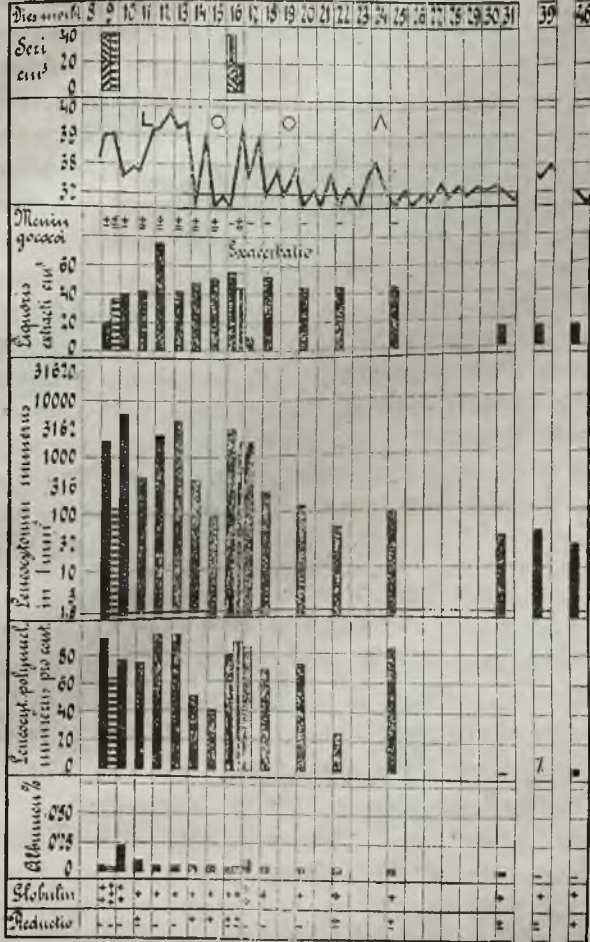 Dies morbi 8 9 10 11 12 13 14 15 16 17 18 19 20 21 22 23 24 25 26 27 28 29 30 31 39 46
Seri cm³
40
20
0
40
39
38
37
L O O Λ
Menin
gococci
Exacerbatio
Liquoris
extracti cm³
60
40
20
0
Leucocytorum numerus
in 1 mm³
31620
10000
3162
1000
316
100
32
10
Leucocyt. polynucl.
numerus pro cent.
80
60
40
20
0
Albumen %
0'50
0'25
0
Globulin
Reductio